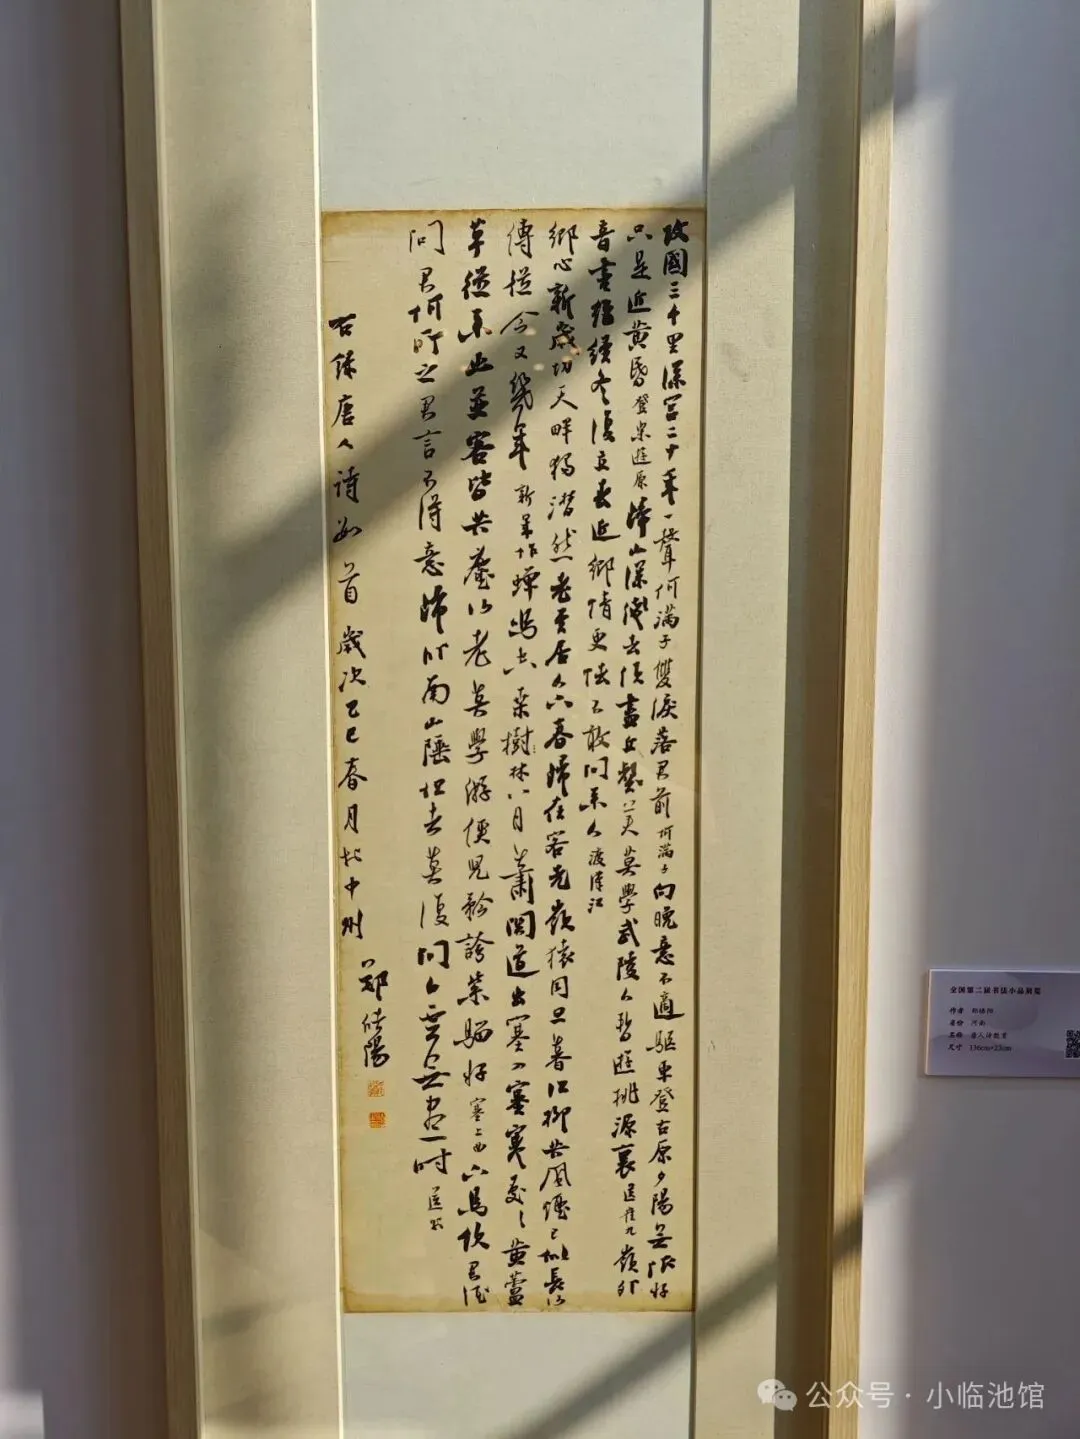 故國三千里深宮二十年一聲何滿子雙淚落君前 何滿子 向晚意不適驅車登古原夕陽無限好
只是近黃昏 登樂遊原 歸山深淺去須盡丘壑美莫學武陵人暫遊桃源裏 送崔九 嶺外
音書絕經冬復立春近鄉情更怯不敢問來人 渡漢江
鄉心新歲切天畔獨潸然老至居人下春歸在客先嶺猿同旦暮江柳共風煙已似長沙
傅從今又幾年 新年作 蟬鳴空桑樹林八月蕭關道出塞入塞寒處〻黃蘆
草從來幽並客皆共塵沙老莫學游俠兒矜誇紫騮好 塞上曲 下馬飲君酒
問君何所之君言不得意歸臥南山陲但去莫復問白雲無盡時 送別
右錄唐人詩數首歲次乙巳春月於中州 鄭陽
全国第二届书法小品展览
作者 郑
省份 河南
名称 唐人诗数首
尺寸 136cm×23cm
公众号·小临池馆